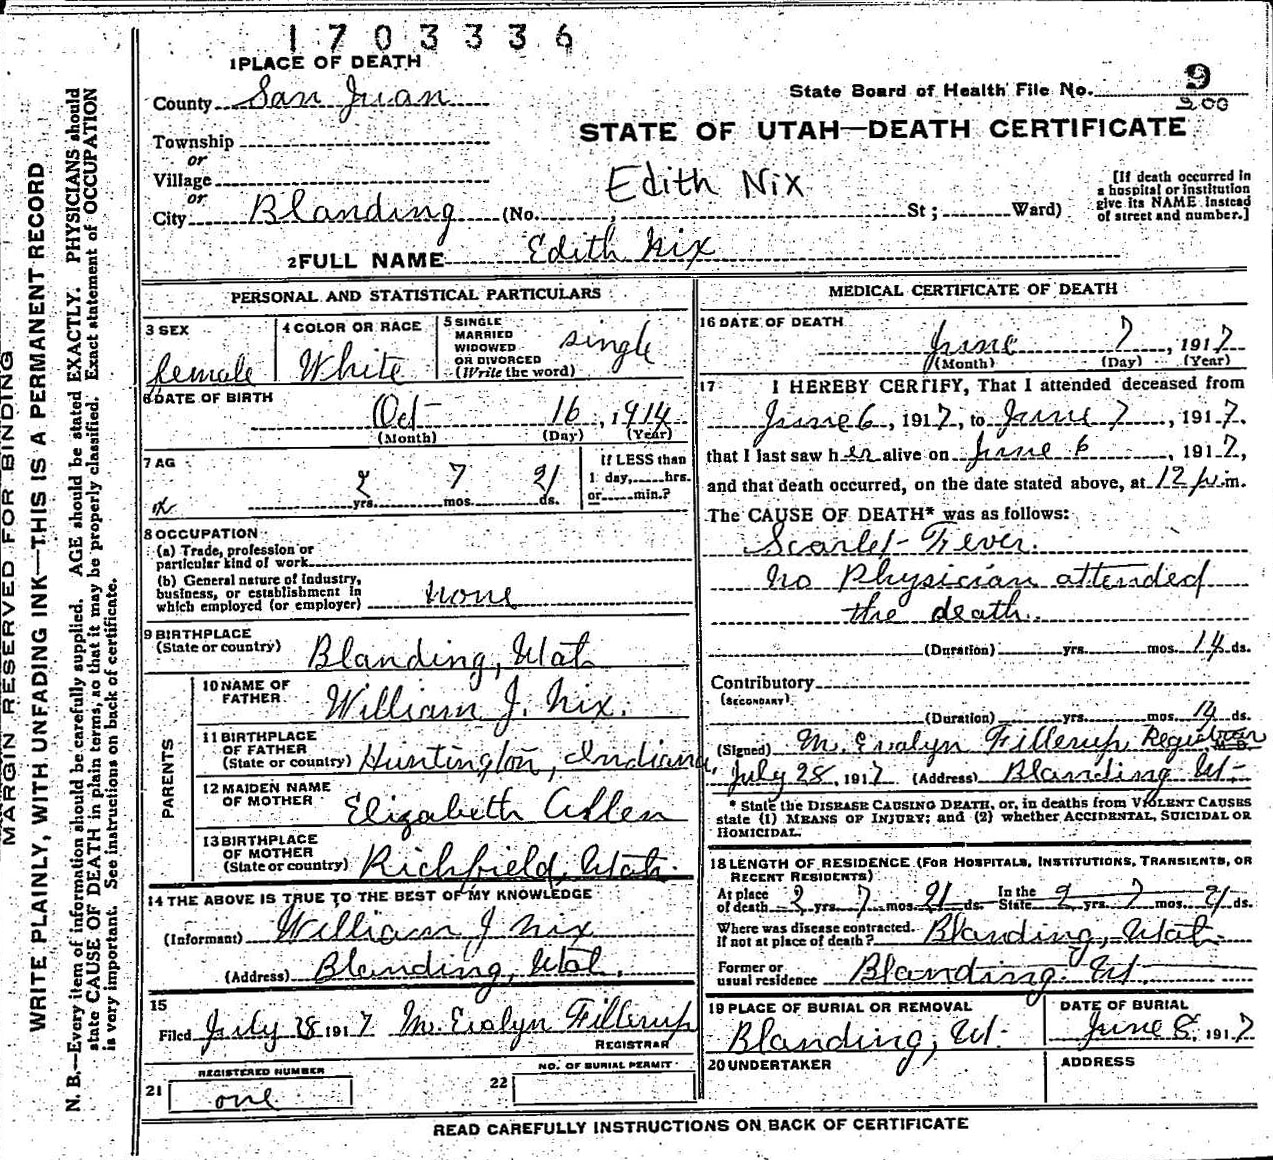 1703336
1 PLACE OF DEATH
County San Juan
State Board of Health File No. 9
200
STATE OF UTAH—DEATH CERTIFICATE
Township
or
Village
or
City Blanding (No. , St; Ward)
Edith Nix
[If death occurred in
a hospital or institution
give its NAME instead
of street and number.]
2 FULL NAME Edith Nix
PERSONAL AND STATISTICAL PARTICULARS
3 SEX
female
4 COLOR OR RACE
White
5 SINGLE
MARRIED
WIDOWED
OR DIVORCED
(Write the word)
single
6 DATE OF BIRTH
Oct 16, 1914
(Month) (Day) (Year)
7 AG
2 yrs. 7 mos. 21 ds.
If LESS than
1 day, hrs.
or min.?
8 OCCUPATION
(a) Trade, profession or
particular kind of work
(b) General nature of Industry,
business, or establishment in
which employed (or employer) none
9 BIRTHPLACE
(State or country) Blanding, Utah
PARENTS
10 NAME OF
FATHER William J. Nix.
11 BIRTHPLACE
OF FATHER
(State or country) Huntington, Indiana.
12 MAIDEN NAME
OF MOTHER Elizabeth Allen
13 BIRTHPLACE
OF MOTHER
(State or country) Richfield, Utah.
14 THE ABOVE IS TRUE TO THE BEST OF MY KNOWLEDGE
(Informant) William J Nix
(Address) Blanding, Utah.
15
Filed July 28 1917 M. Evalyn Fillerup
REGISTRAR
21 REGISTERED NUMBER
one
22 NO. OF BURIAL PERMIT
MEDICAL CERTIFICATE OF DEATH
16 DATE OF DEATH
June 7, 1917
(Month) (Day) (Year)
17 I HEREBY CERTIFY, That I attended deceased from
June 6, 1917, to June 7, 1917.
that I last saw her alive on June 6, 1917,
and that death occurred, on the date stated above, at 12 p.m.
The CAUSE OF DEATH* was as follows:
Scarlet Fever.
No Physician attended
the death.
(Duration) yrs. mos. 14 ds.
Contributory
(SECONDARY)
(Duration) yrs. mos. 14 ds.
(Signed) M. Evalyn Fillerup Registrar M.D.
July 28, 1917 (Address) Blanding Ut.
* State the DISEASE CAUSING DEATH, or, in deaths from VIOLENT CAUSES
state (1) MEANS OF INJURY; and (2) whether ACCIDENTAL, SUICIDAL OR
HOMICIDAL.
18 LENGTH OF RESIDENCE (FOR HOSPITALS, INSTITUTIONS, TRANSIENTS, OR
RECENT RESIDENTS)
At place
of death 2 yrs. 7 mos. 21 ds. In the
State 2 yrs. 7 mos. 21 ds.
Where was disease contracted.
if not at place of death? Blanding, Utah.
Former or
usual residence Blanding Ut.
19 PLACE OF BURIAL OR REMOVAL
Blanding, Ut.
DATE OF BURIAL
June 8, 1917
20 UNDERTAKER
ADDRESS
READ CAREFULLY INSTRUCTIONS ON BACK OF CERTIFICATE
MARGIN RESERVED FOR BINDING
WRITE PLAINLY, WITH UNFADING INK—THIS IS A PERMANENT RECORD
N. B.—Every item of information should be carefully supplied. AGE should be stated EXACTLY. PHYSICIANS should
state CAUSE OF DEATH in plain terms, so that it may be properly classified. Exact statement of OCCUPATION
is very important. See instructions on back of certificate.